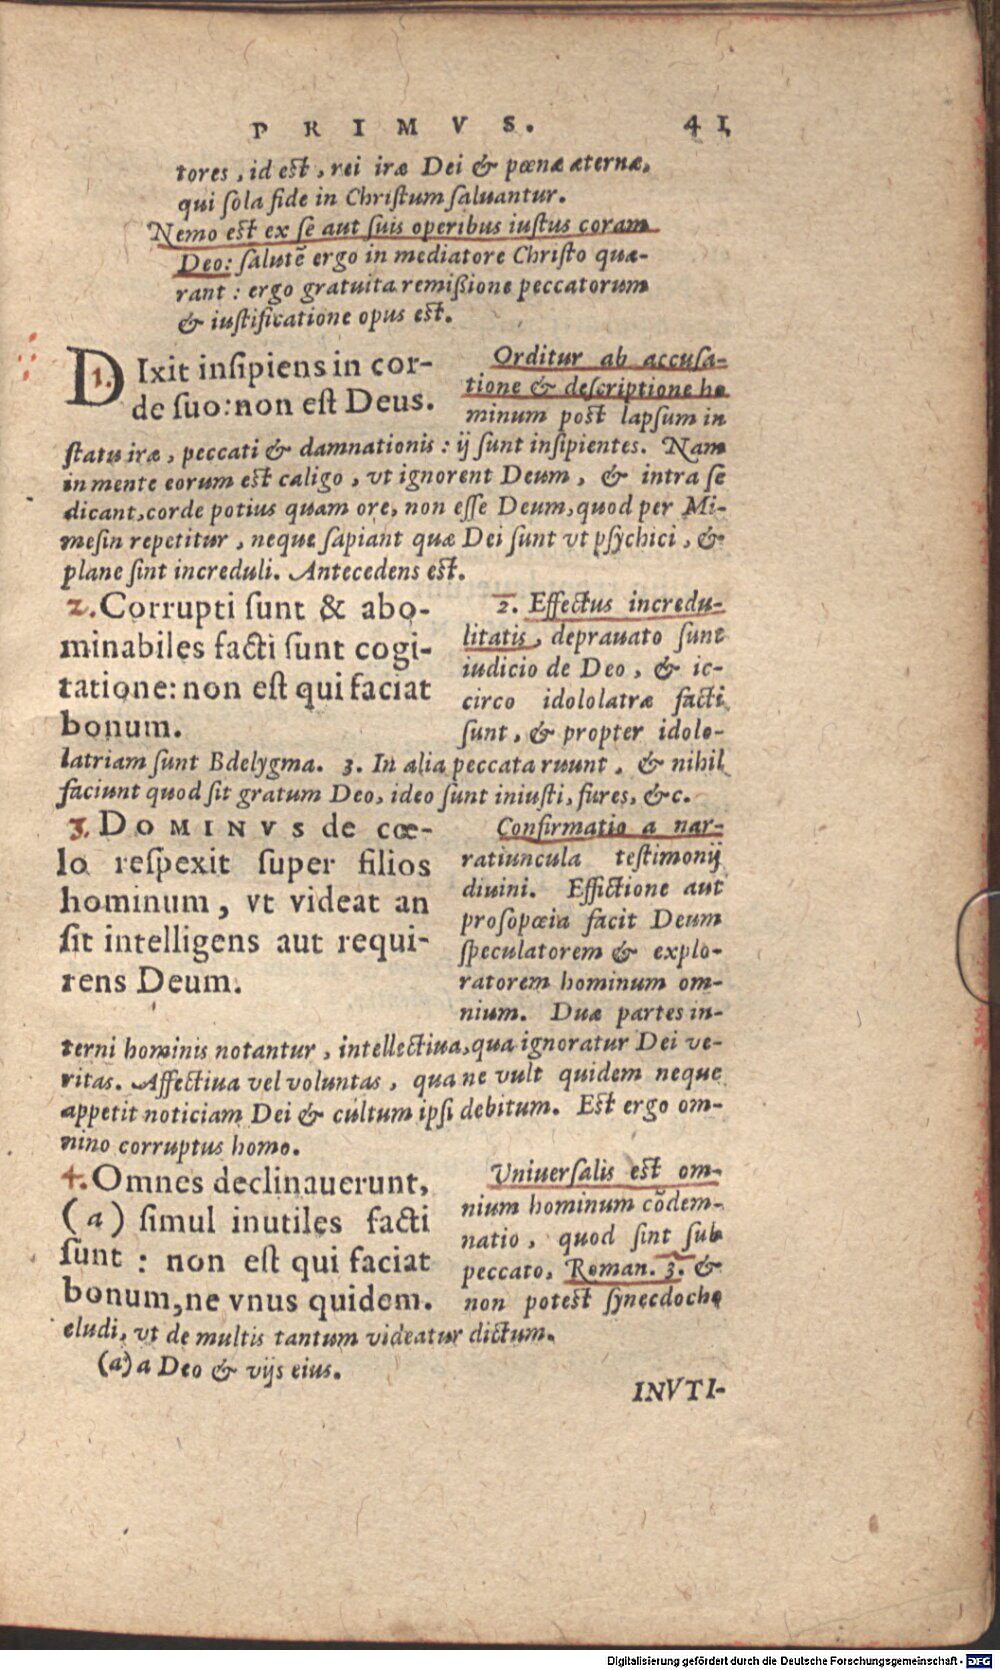 PRIMVS. 41
tores, id est, rei iræ Dei & pœnæ æternæ,
qui sola fide in Christum saluantur.
Nemo est ex se aut suis operibus iustus coram
Deo: salutē ergo in mediatore Christo quæ-
rant: ergo gratuita remißione peccatorum
& iustificatione opus est.
1. DIxit insipiens in cor-
de suo: non est Deus.
Orditur ab accusa-
tione & descriptione ho
minum post lapsum in
statu iræ, peccati & damnationis: ij sunt insipientes. Nam
in mente eorum est caligo, vt ignorent Deum, & intra se
dicant, corde potius quam ore, non esse Deum, quod per Mi-
mesin repetitur, neque sapiant quæ Dei sunt vt psychici, &
plane sint increduli. Antecedens est.
2. Corrupti sunt & abo-
minabiles facti sunt cogi-
tatione: non est qui faciat
bonum.
2. Effectus incredu-
litatis, deprauato sunt
iudicio de Deo, & ic-
circo idololatræ facti
sunt, & propter idolo-
latriam sunt Bdelygma. 3. In alia peccata ruunt, & nihil
faciunt quod sit gratum Deo, ideo sunt iniusti, fures, &c.
3. DOMINVS de cœ-
lo respexit super filios
hominum, vt videat an
sit intelligens aut requi-
rens Deum.
Confirmatio a nar-
ratiuncula testimonij
diuini. Effictione aut
prosopœia facit Deum
speculatorem & explo-
ratorem hominum om-
nium. Duæ partes in-
terni hominis notantur, intellectiua, qua ignoratur Dei ve-
ritas. Affectiua vel voluntas, qua ne vult quidem neque
appetit noticiam Dei & cultum ipsi debitum. Est ergo om-
nino corruptus homo.
4. Omnes declinauerunt,
(a) simul inutiles facti
sunt: non est qui faciat
bonum, ne vnus quidem.
Uniuersalis est om-
nium hominum cōdem-
natio, quod sint sub
peccato, Roman. 3. &
non potest synecdoche
eludi, vt de multis tantum videatur dictum.
(a) a Deo & vijs eius.
INVTI-
Digitalisierung gefördert durch die Deutsche Forschungsgemeinschaft - DFG